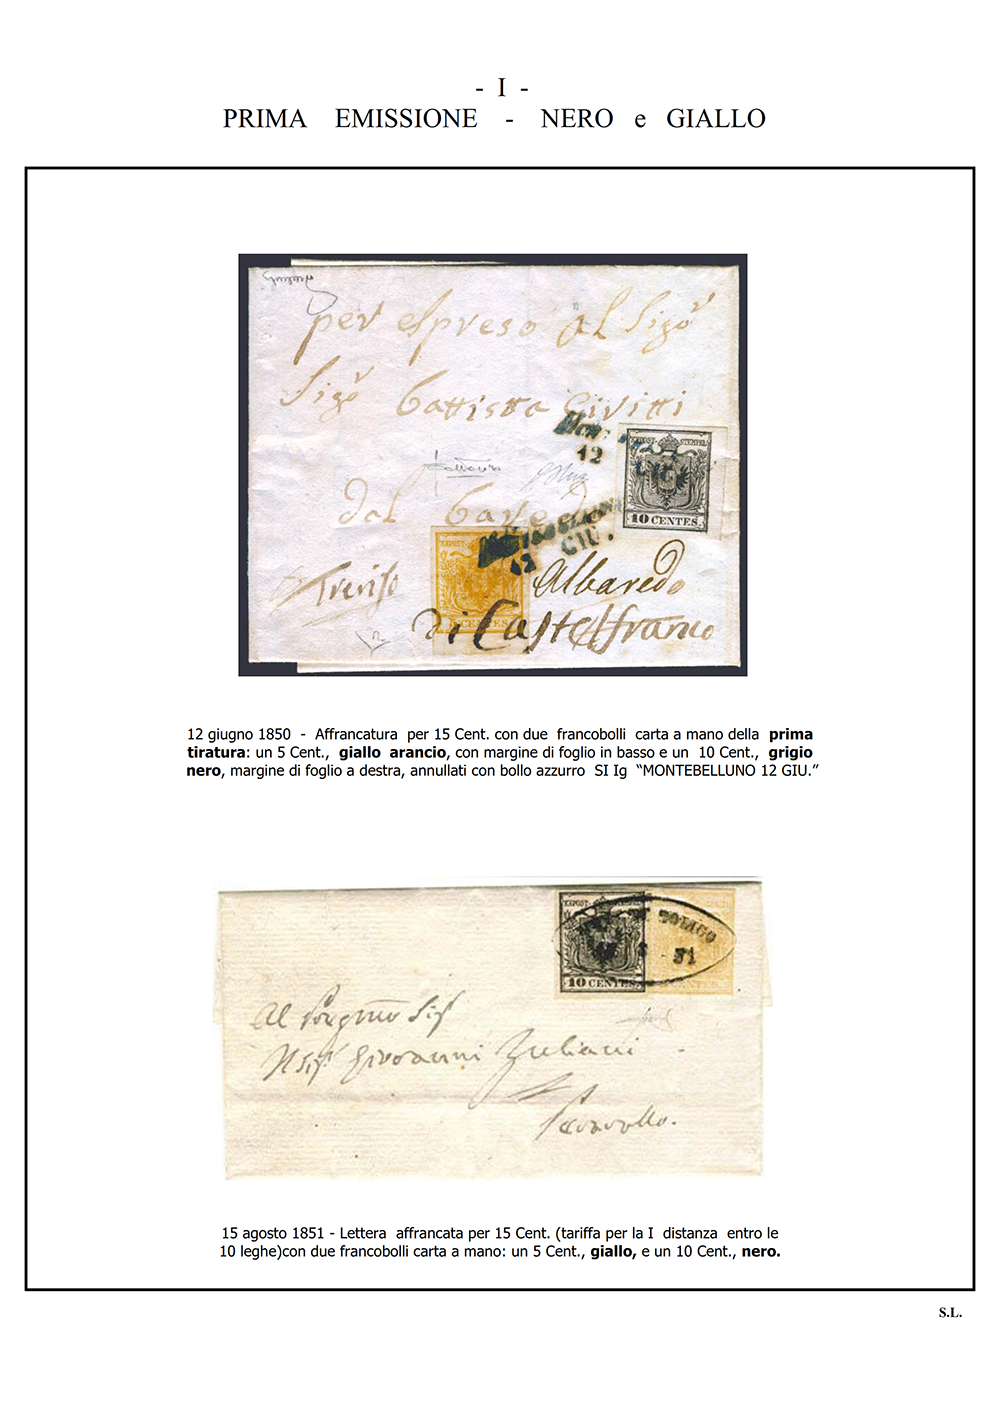 - I -
PRIMA EMISSIONE - NERO e GIALLO
per espreso al Sigr
Sigr Battista Civitti
12
GIU.
KPOST- STEMPEL
10 CENTES.
dal
12 GIU.
5 CENTES.
Treviso
Albaredo
di Castelfranco
12 giugno 1850 - Affrancatura per 15 Cent. con due francobolli carta a mano della prima
tiratura: un 5 Cent., giallo arancio, con margine di foglio in basso e un 10 Cent., grigio
nero, margine di foglio a destra, annullati con bollo azzurro SI Ig “MONTEBELLUNO 12 GIU.”
51
10 CENTES.
CENTES.
Al
Giovanni Zuliani
15 agosto 1851 - Lettera affrancata per 15 Cent. (tariffa per la I distanza entro le
10 leghe)con due francobolli carta a mano: un 5 Cent., giallo, e un 10 Cent., nero.
S.L.